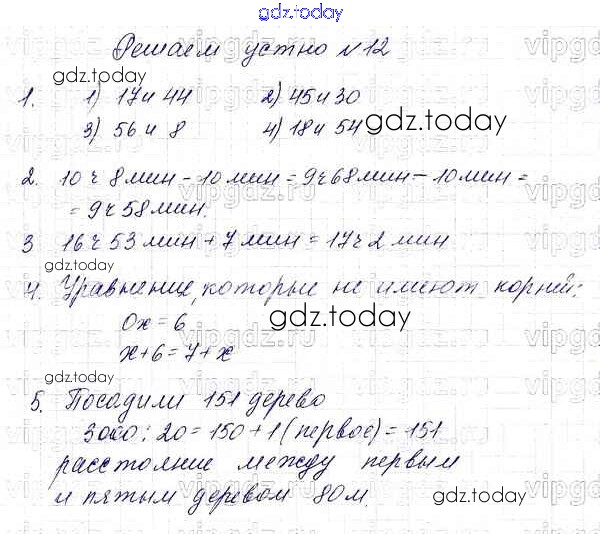 gdz.today
Решаем устно №12
gdz.today
1. 1) 17 и 44 2) 45 и 30
3) 56 и 8 4) 18 и 54
gdz.today
2. 10 ч 8 мин - 10 мин = 9 ч 68 мин - 10 мин =
= 9 ч 58 мин.
3 16 ч 53 мин + 7 мин = 17 ч 2 мин
gdz.today
4. Уравнение, которые не имеют корней:
0x = 6
gdz.today
x + 6 = 7 + x
gdz.today
5. Посадили 151 дерево
3000 : 20 = 150 + 1 (первое) = 151
расстояние между первым
и пятым деревом 80 м.
gdz.today
vipgdz.ru